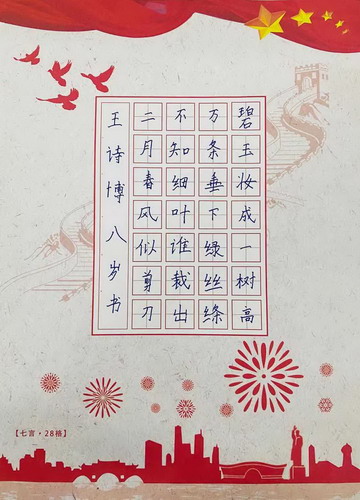 碧玉妆成一树高
万条垂下绿丝绦
不知细叶谁裁出
二月春风似剪刀
王诗博八岁书
【七言·28格】